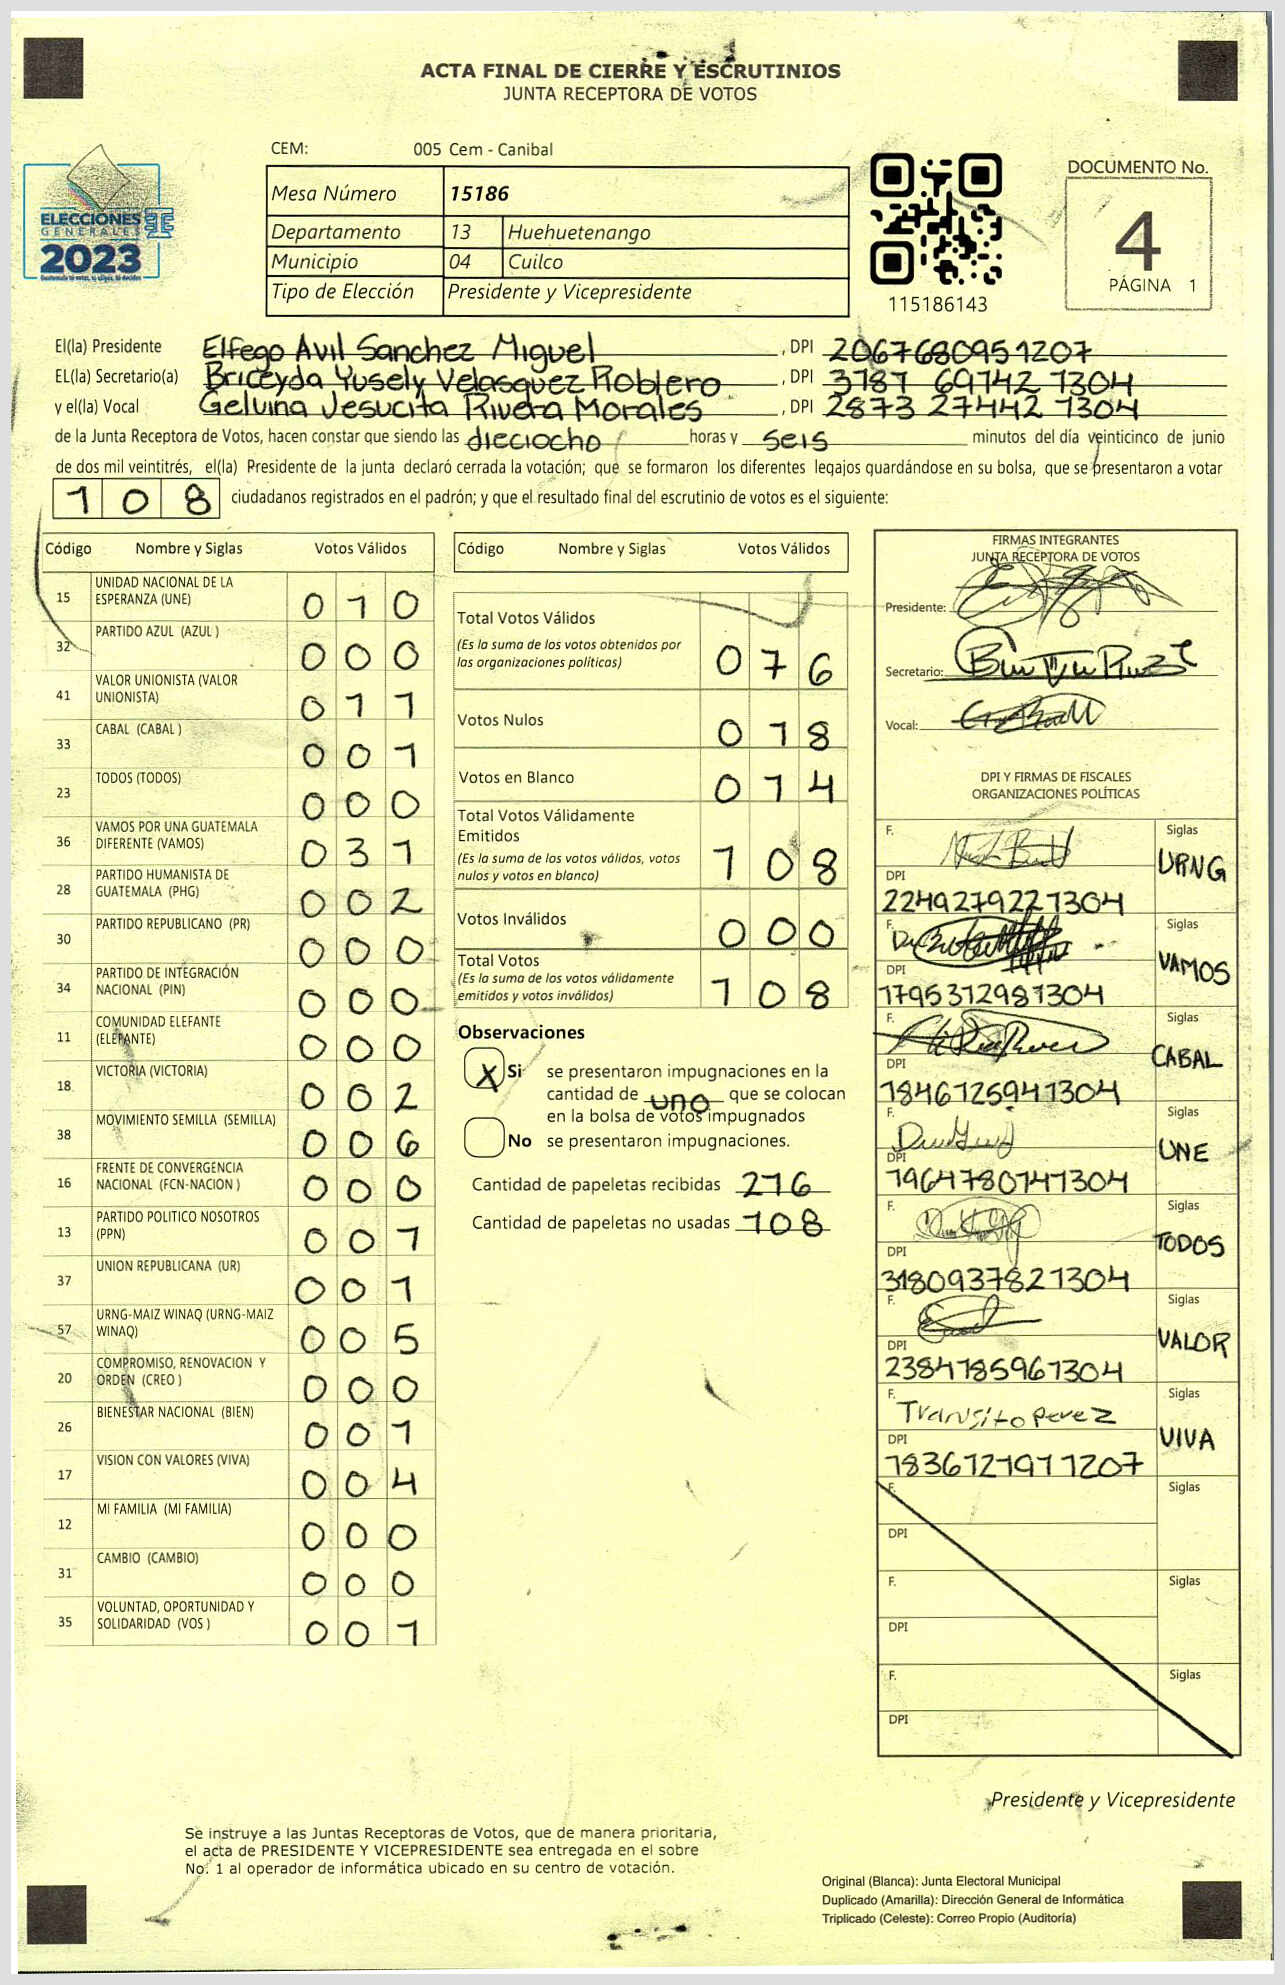 ACTA FINAL DE CIERRE Y ESCRUTINIOS
JUNTA RECEPTORA DE VOTOS
CEM: 005 Cem - Canibal
ELECCIONES
GENERALES
2023
Mesa Número 15186
Departamento 13 Huehuetenango
Municipio 04 Cuilco
Tipo de Elección Presidente y Vicepresidente
115186143
DOCUMENTO No.
4
PÁGINA 1
El(la) Presidente Elfego Avil Sanchez Miguel, DPI 2067680951207
EL(la) Secretario(a) Briceyda Yusely Velasquez Roblero, DPI 3787 69742 1304
y el(la) Vocal Geluina Jesucita Rivera Morales, DPI 2873 27442 1304
de la Junta Receptora de Votos, hacen constar que siendo las dieciocho horas y seis minutos del día veinticinco de junio
de dos mil veintitrés, el(la) Presidente de la junta declaró cerrada la votación; que se formaron los diferentes legajos guardándose en su bolsa, que se presentaron a votar
108 ciudadanos registrados en el padrón; y que el resultado final del escrutinio de votos es el siguiente:
Código Nombre y Siglas Votos Válidos
15 UNIDAD NACIONAL DE LA ESPERANZA (UNE) 010
32 PARTIDO AZUL (AZUL ) 000
41 VALOR UNIONISTA (VALOR UNIONISTA) 011
33 CABAL (CABAL ) 001
23 TODOS (TODOS) 000
36 VAMOS POR UNA GUATEMALA DIFERENTE (VAMOS) 031
28 PARTIDO HUMANISTA DE GUATEMALA (PHG) 002
30 PARTIDO REPUBLICANO (PR) 000
34 PARTIDO DE INTEGRACIÓN NACIONAL (PIN) 000
11 COMUNIDAD ELEFANTE (ELEFANTE) 000
18 VICTORIA (VICTORIA) 002
38 MOVIMIENTO SEMILLA (SEMILLA) 006
16 FRENTE DE CONVERGENCIA NACIONAL (FCN-NACION ) 000
13 PARTIDO POLITICO NOSOTROS (PPN) 001
37 UNION REPUBLICANA (UR) 001
57 URNG-MAIZ WINAQ (URNG-MAIZ WINAQ) 005
20 COMPROMISO, RENOVACION Y ORDEN (CREO ) 000
26 BIENESTAR NACIONAL (BIEN) 001
17 VISION CON VALORES (VIVA) 004
12 MI FAMILIA (MI FAMILIA) 000
31 CAMBIO (CAMBIO) 000
35 VOLUNTAD, OPORTUNIDAD Y SOLIDARIDAD (VOS ) 001
Código Nombre y Siglas Votos Válidos
Total Votos Válidos
(Es la suma de los votos obtenidos por
las organizaciones políticas) 076
Votos Nulos 018
Votos en Blanco 014
Total Votos Válidamente
Emitidos
(Es la suma de los votos válidos, votos
nulos y votos en blanco) 108
Votos Inválidos 000
Total Votos
(Es la suma de los votos válidamente
emitidos y votos inválidos) 108
Observaciones
X Si se presentaron impugnaciones en la
cantidad de uno que se colocan
en la bolsa de votos impugnados
No se presentaron impugnaciones.
Cantidad de papeletas recibidas 216
Cantidad de papeletas no usadas 108
FIRMAS INTEGRANTES
JUNTA RECEPTORA DE VOTOS
Presidente:
Secretario:
Vocal:
DPI Y FIRMAS DE FISCALES
ORGANIZACIONES POLÍTICAS
F. Siglas
URNG
DPI
2249279221304
F. Siglas
VAMOS
DPI
1795312981304
F. Siglas
CABAL
DPI
1846125941304
F. Siglas
UNE
DPI
1964780141304
F. Siglas
TODOS
DPI
3180937821304
F. Siglas
VALOR
DPI
2384185961304
F. Transito Perez Siglas
VIVA
DPI
1836121911207
F. Siglas
DPI
F. Siglas
DPI
F. Siglas
DPI
Presidente y Vicepresidente
Se instruye a las Juntas Receptoras de Votos, que de manera prioritaria,
el acta de PRESIDENTE Y VICEPRESIDENTE sea entregada en el sobre
No. 1 al operador de informática ubicado en su centro de votación.
Original (Blanca): Junta Electoral Municipal
Duplicado (Amarilla): Dirección General de Informática
Triplicado (Celeste): Correo Propio (Auditoría)